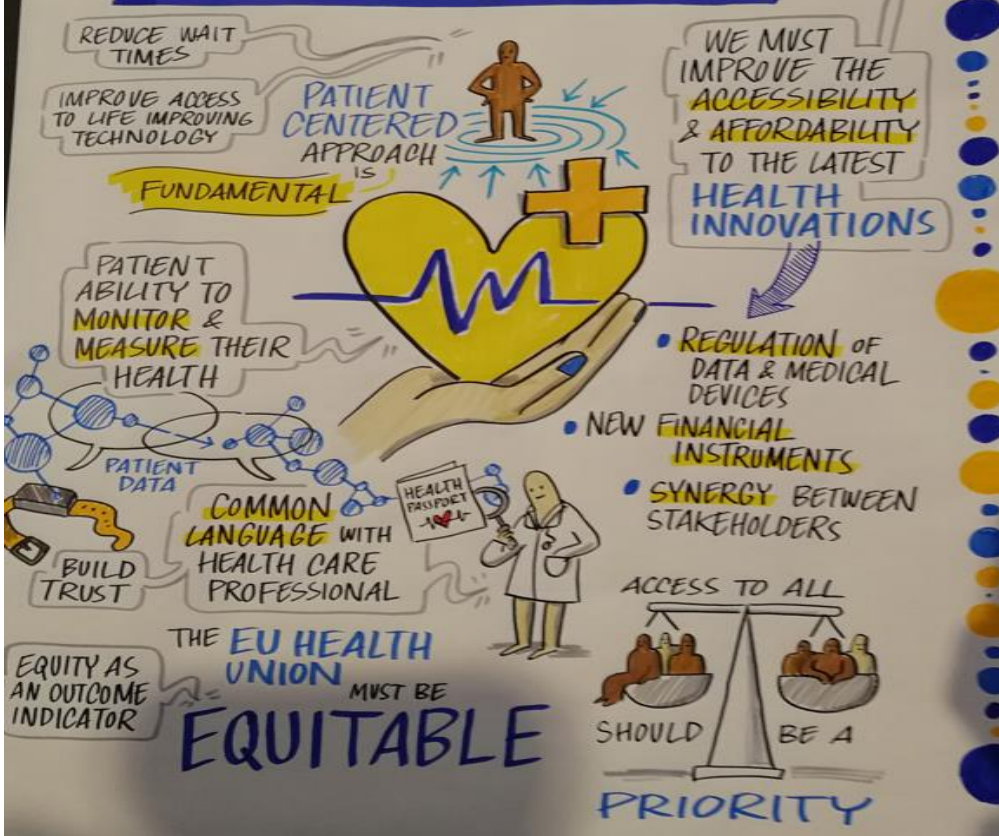 REDUCE WAIT
TIMES
IMPROVE ACCESS
TO LIFE IMPROVING
TECHNOLOGY
PATIENT
CENTERED
APPROACH
IS
FUNDAMENTAL
WE MUST
IMPROVE THE
ACCESSIBILITY
& AFFORDABILITY
TO THE LATEST
HEALTH
INNOVATIONS
PATIENT
ABILITY TO
MONITOR &
MEASURE THEIR
HEALTH
• REGULATION OF
DATA & MEDICAL
DEVICES
• NEW FINANCIAL
INSTRUMENTS
• SYNERGY BETWEEN
STAKEHOLDERS
PATIENT
DATA
COMMON
LANGUAGE WITH
HEALTH CARE
PROFESSIONAL
HEALTH
PASSPORT
BUILD
TRUST
THE EU HEALTH
UNION
MUST BE
EQUITABLE
EQUITY AS
AN OUTCOME
INDICATOR
ACCESS TO ALL
SHOULD BE A
PRIORITY